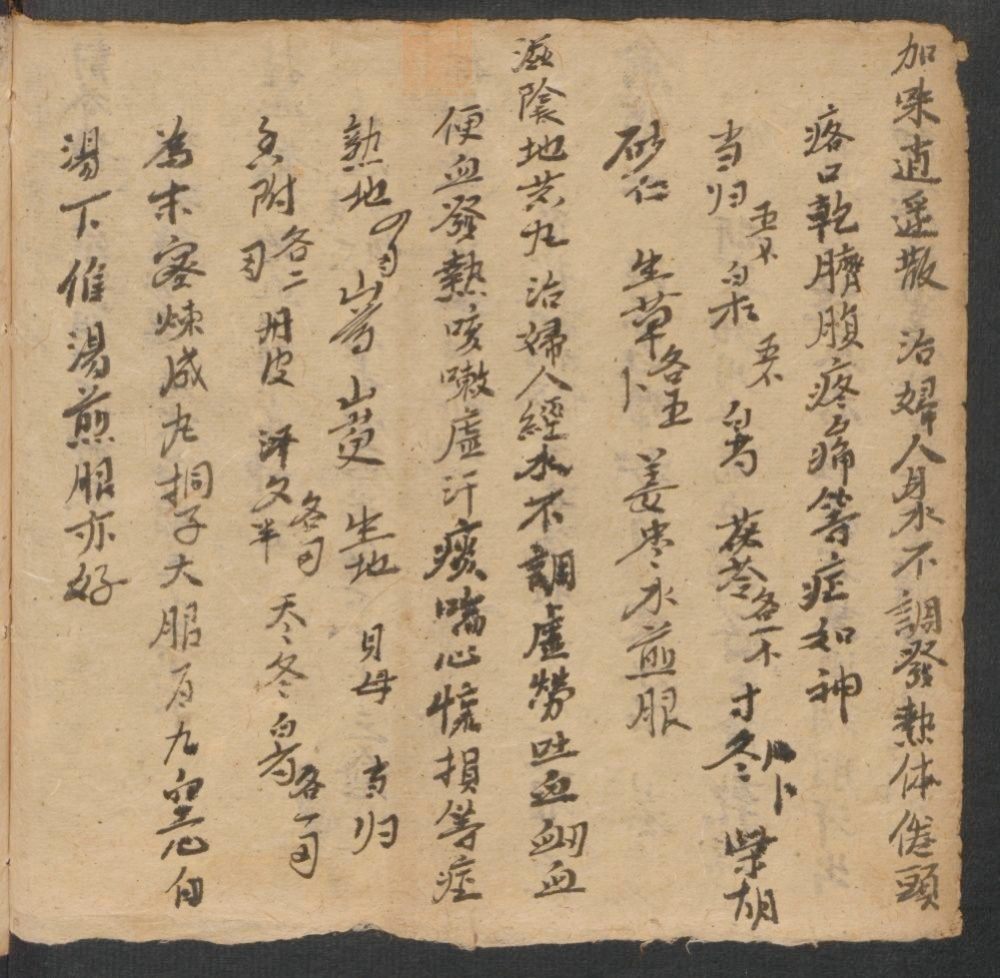 加味逍遥散 治婦人月水不調發熱体倦頭
疼口乾臍腹疼痛等症如神
当归 白朮 白芍 茯苓各一 寸冬 柴胡
砂仁 生草各五卜 姜枣水煎服
滋陰地黄丸治婦人經水不調虛勞吐血衄血
便血發熱咳嗽虛汗痰喘心慌損等症
熟地 山芎 山萸 生地 貝母 当归
香附各二 丹皮 泽夕半各 天冬 白芍各一
為末密煉成丸捅子大服百九空心白
湯下作湯煎服亦好